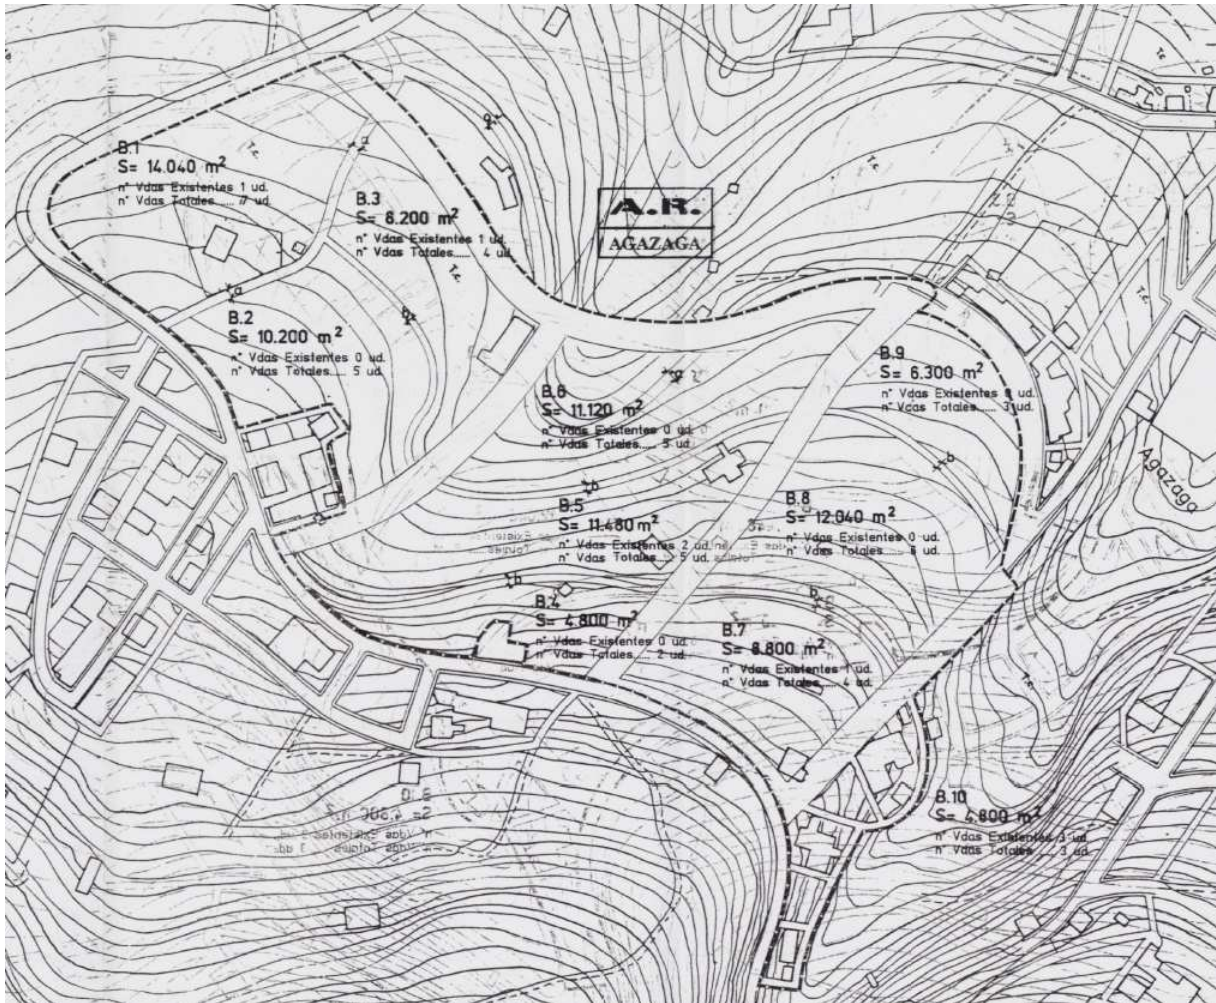 B.1
S= 14.040 m²
nº Vdas Existentes 1 ud.
nº Vdas Totales..... 7 ud.
B.3
S= 8.200 m²
nº Vdas Existentes 1 ud.
nº Vdas Totales..... 4 ud.
A.R.
AGAZAGA
B.2
S= 10.200 m²
nº Vdas Existentes 0 ud.
nº Vdas Totales..... 5 ud.
B.9
S= 6.300 m²
nº Vdas Existentes ud.
nº Vdas Totales..... 3 ud.
B.6
S= 11.120 m²
nº Vdas Existentes 0 ud.
nº Vdas Totales..... 5 ud.
Agazaga
B.5
S= 11.480 m²
nº Vdas Existentes 2 ud.
nº Vdas Totales..... 5 ud.
B.8
S= 12.040 m²
nº Vdas Existentes 0 ud.
nº Vdas Totales..... 6 ud.
B.4
S= 4.800 m²
nº Vdas Existentes 0 ud.
nº Vdas Totales..... 2 ud.
B.7
S= 8.800 m²
nº Vdas Existentes 1 ud.
nº Vdas Totales..... 4 ud.
B.10
S= 4.800 m²
nº Vdas Existentes ud.
nº Vdas Totales..... 3 ud.
T.c.
T.c.
T.c.
T.c.
T.c.
T.c.